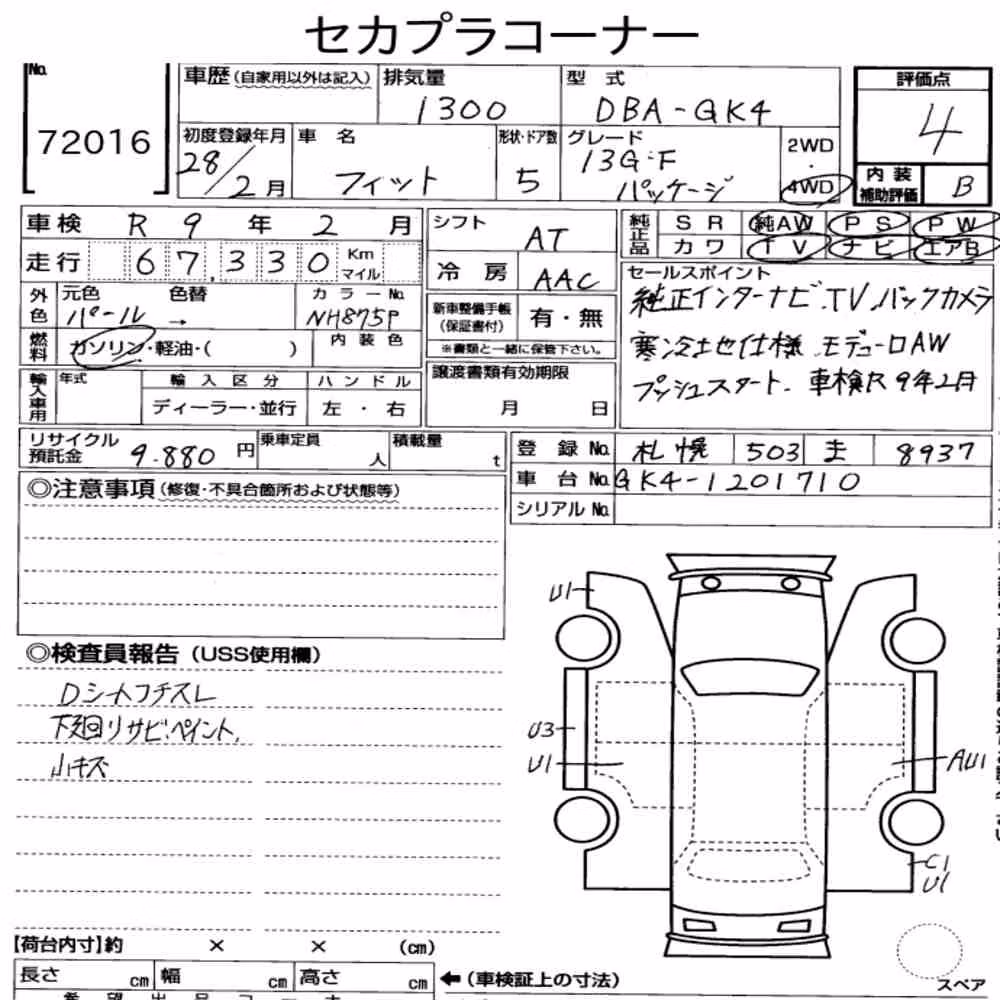 セカプラコーナー
No.
72016
車歴(自家用以外は記入)
排気量
1300
型 式
DBA-GK4
評価点
4
初度登録年月
28/2月
車 名
フィット
形状・ドア数
5
グレード
13G・F
パッケージ
2WD
・
4WD
内装
補助評価
B
車検 R 9 年 2 月
走行 67,330 Km
マイル
シフト
AT
冷房
AAC
純正品
SR 純AW PS PW
カワ TV ナビ エアB
外色
元色 色替
パール →
カラーNo.
NH875P
燃料
ガソリン・軽油・( )
内装色
新車整備手帳
(保証書付)
有・無
※書類と一緒に保管下さい。
セールスポイント
純正インターナビ.TV.バックカメラ
寒冷地仕様 モデューロAW
プッシュスタート. 車検R9年2月
輸入車用
年式
輸入区分
ディーラー・並行
ハンドル
左・右
譲渡書類有効期限
月 日
リサイクル
預託金
9.880円
乗車定員
人
積載量
t
登録No. 札幌 503 ま 8937
車台No. GK4-1201710
シリアルNo.
◎注意事項(修復・不具合箇所および状態等)
◎検査員報告(USS使用欄)
Dシートコゲスレ
下廻リサビ.ペイント.
小キズ
U1
U3
U1
AU1
C1
U1
【荷台内寸】約 × × (cm)
長さ cm 幅 cm 高さ cm
←(車検証上の寸法)
スペア